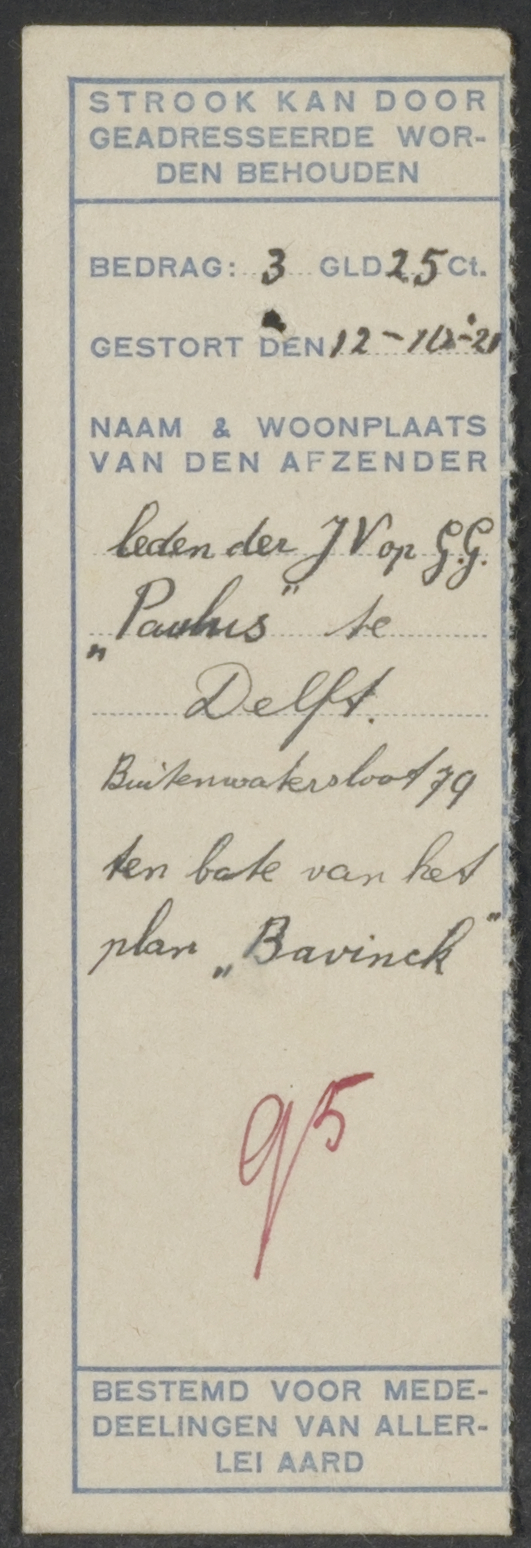 STROOK KAN DOOR
GEADRESSEERDE WOR-
DEN BEHOUDEN
BEDRAG: 3 GLD 25 Ct.
GESTORT DEN 12-
NAAM & WOONPLAATS
VAN DEN AFZENDER
leden der JV op G.G.
„Paulus" te
Delft.
Buitenwatersloot 79
ten bate van het
plan „Bavinck"
95
BESTEMD VOOR MEDE-
DEELINGEN VAN ALLER-
LEI AARD